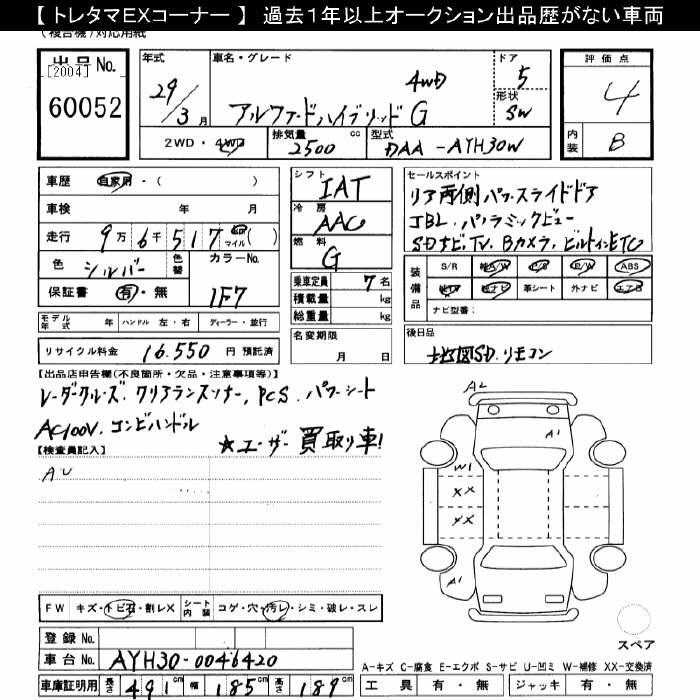 【 トレタマEXコーナー 】 過去1年以上オークション出品歴がない車両
(複合機)対応用紙
出品 No.
[2004]
60052
年式 29/3月
車名・グレード
4WD
アルファードハイブリッド G
ドア 5
形状 SW
評価点 4
内装 B
2WD ・ 4WD
排気量 2500 cc
型式 DAA - AYH30W
車歴 自家用 ・ ( )
車検 年 月
走行 9万 6千 517 km マイル ( )
色 シルバー
色替
カラーNo. 1F7
保証書 有 ・ 無
シフト IAT
冷房 AAC
燃料 G
乗車定員 7 名
積載量 kg
総重量 kg
セールスポイント
リア両側パワースライドドア
JBL. パノラミックビュー
SDナビ, TV, Bカメラ, ビルトインETC
装備品
S/R 純A/W P/S P/W ABS
純TV 純ナビ 革シート 外ナビ エアB
ナビ型番:
モデル年式 年 ハンドル 左 ・ 右 ディーラー ・ 並行
名変期限 月 日
後日品
地図SD. リモコン
リサイクル料金 16,550 円 預託済
【出品店申告欄(不良箇所・欠品・注意事項等)】
レーダークルーズ. クリアランスソナー, PCS. パワーシート
AC100V. コンビハンドル
★ユーザー買取り車!
【検査員記入】
AU
A2
A1
W1
XX
XX
A1
FW キズ・トビ石・割レX
シート内装 コゲ・穴・汚レ・シミ・破レ・スレ
登録 No.
車台 No. AYH30-0046420
車庫証明用 長さ 491 cm 幅 185 cm 高さ 189 cm
スペア
A-キズ C-腐食 E-エクボ S-サビ U-凹ミ W-補修 XX-交換済
工具 有 ・ 無 ジャッキ 有 ・ 無